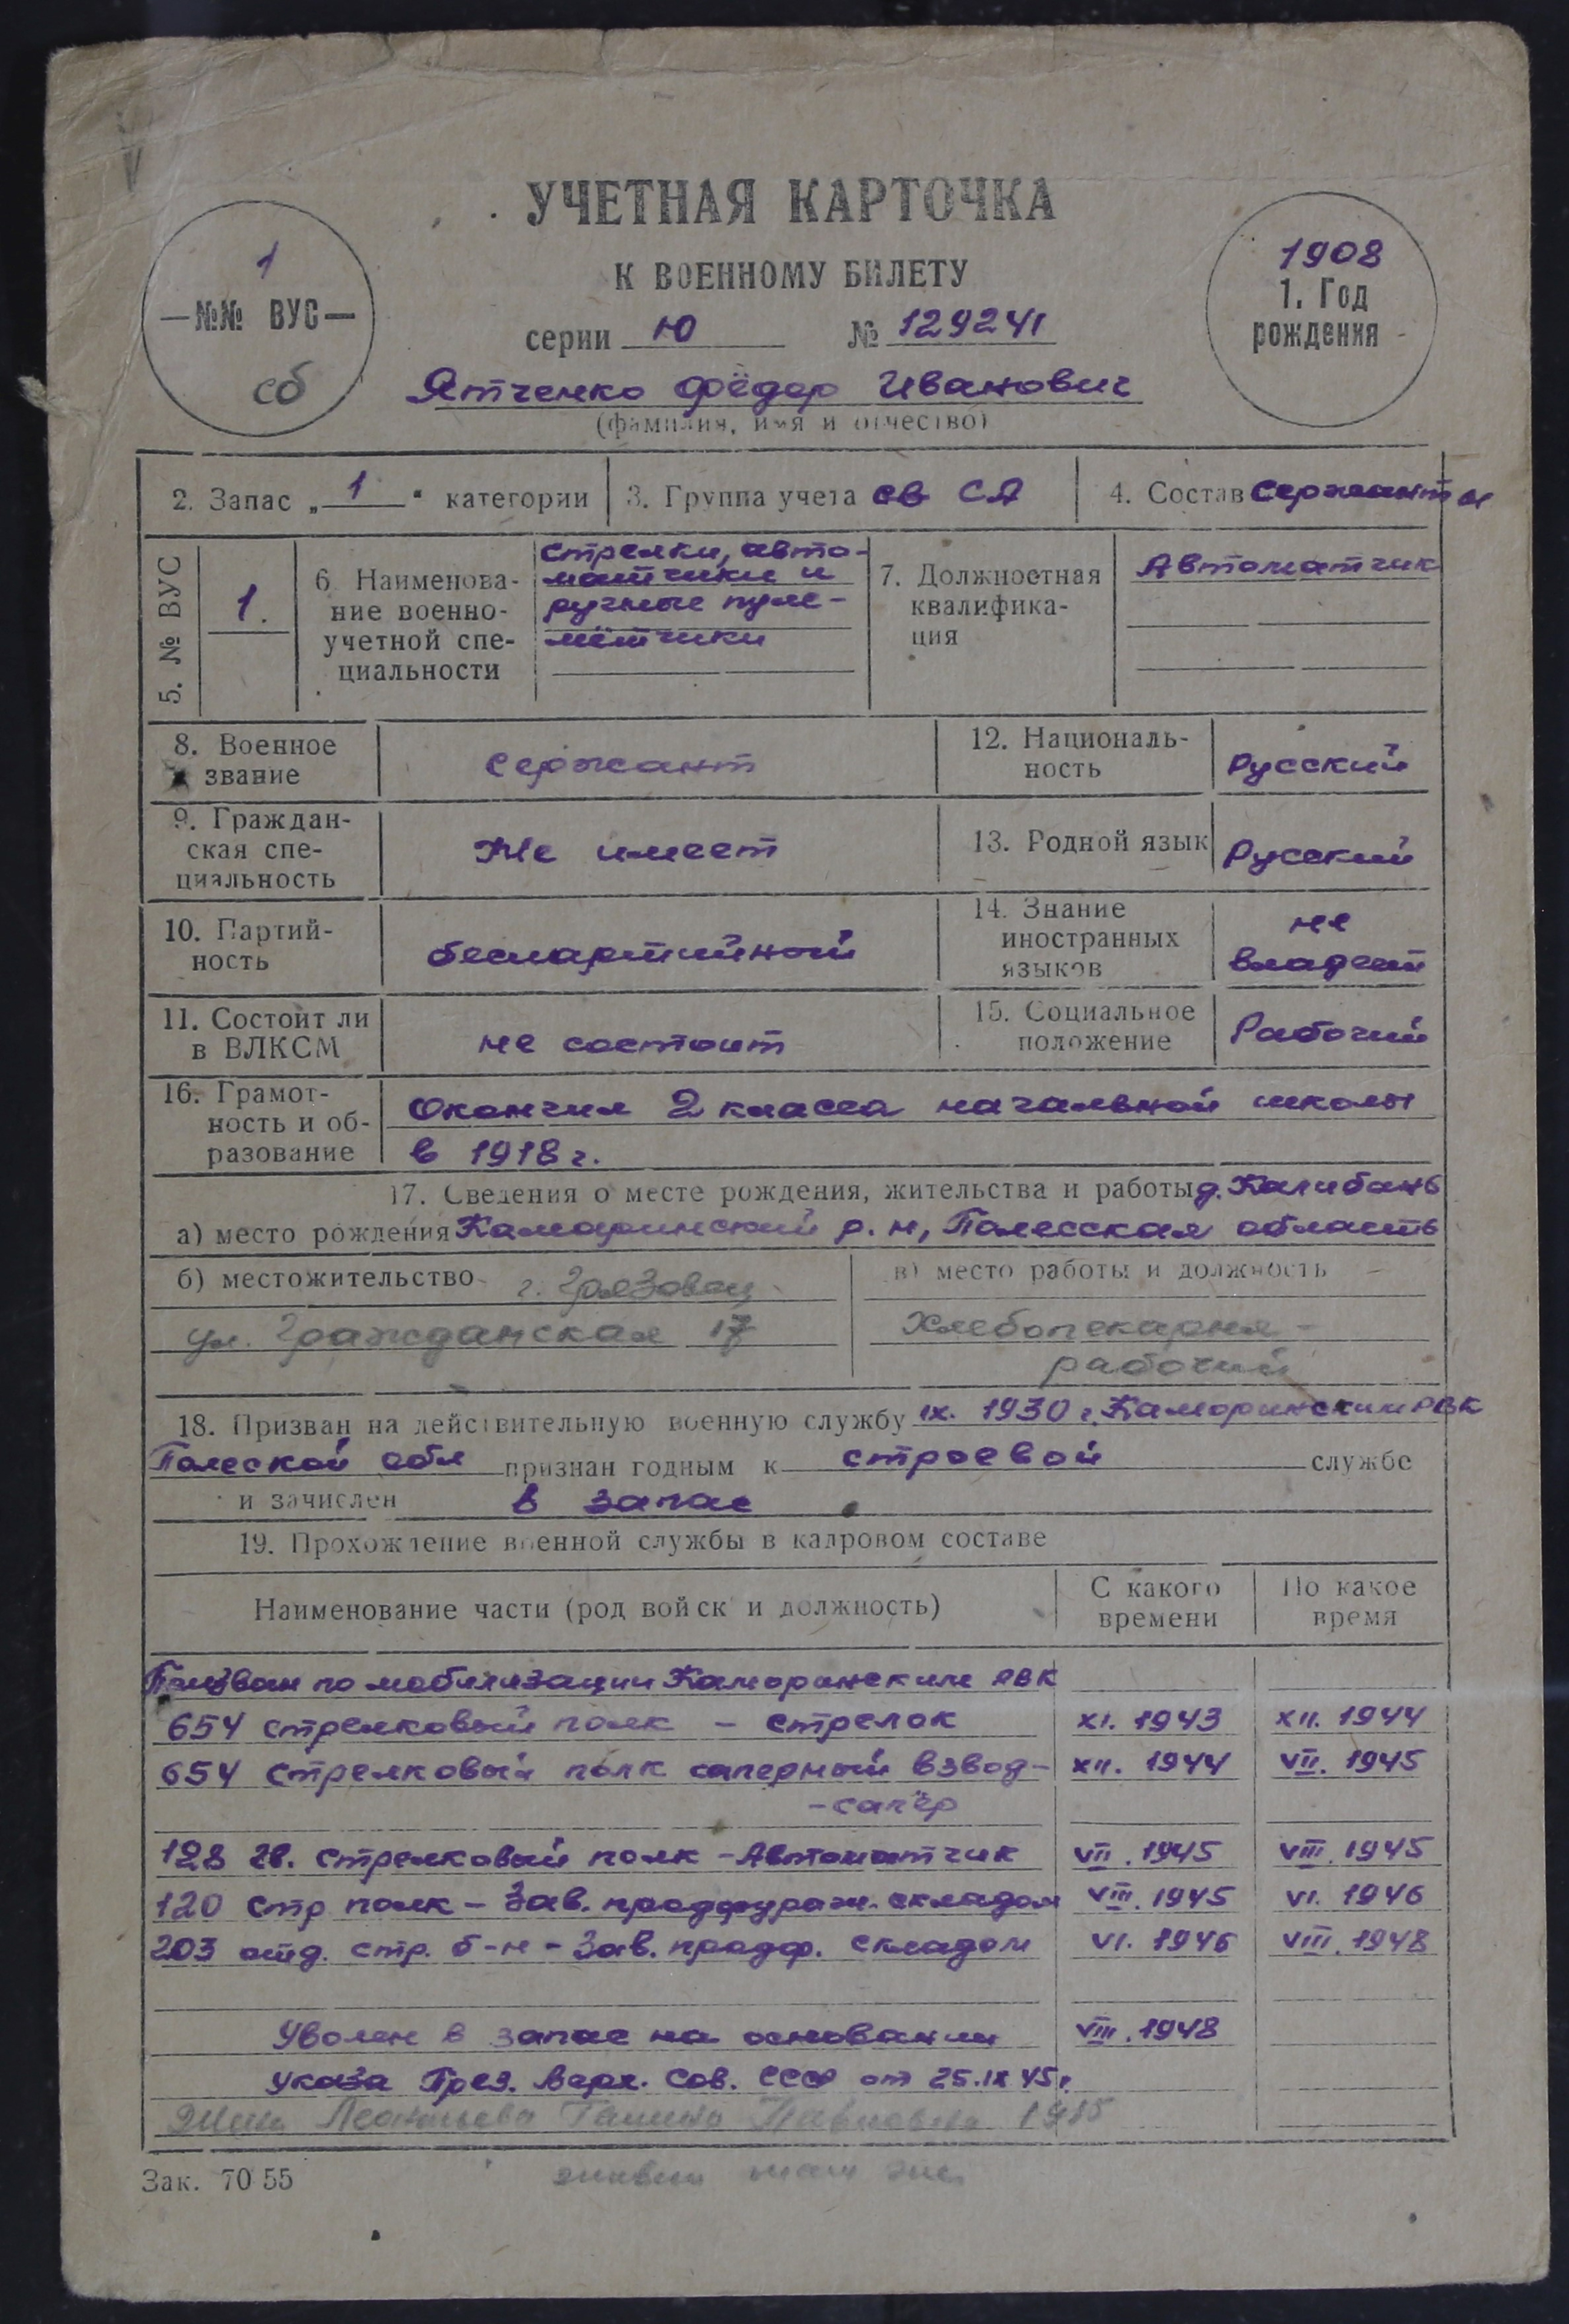 УЧЕТНАЯ КАРТОЧКА
К ВОЕННОМУ БИЛЕТУ
серии Ю № 129241
1
№№ ВУС
сб
1908
1. Год
рождения
Ятченко Фёдор Иванович
(фамилия, имя и отчество)
2. Запас „1" категории
3. Группа учета св СА
4. Состав Сержанты
5. № ВУС
1.
6. Наименова-
ние военно-
учетной спе-
циальности
Стрелки, авто-
матчики и
ручные пуле-
мётчики
7. Должностная
квалифика-
ция
Автоматчик
8. Военное
звание
Сержант
12. Националь-
ность
Русский
9. Граждан-
ская спе-
циальность
Не имеет
13. Родной язык
Русский
10. Партий-
ность
беспартийный
14. Знание
иностранных
языков
не
владеет
11. Состоит ли
в ВЛКСМ
не состоит
15. Социальное
положение
Рабочий
16. Грамот-
ность и об-
разование
Окончил 2 класса начальной школы
в 1918 г.
17. Сведения о месте рождения, жительства и работы д.
а) место рождения Камаринский р.н, Полесская область
б) местожительство г. Грязовец
ул. Гражданская 17
в) место работы и должность
Хлебопекарня -
рабочий
18. Призван на действительную военную службу IX. 1930 г. Камаринским РВК
Полеской обл признан годным к строевой службе
и зачислен в запас
19. Прохождение военной службы в кадровом составе
Наименование части (род войск и должность)
С какого
времени
По какое
время
Призван по мобилизации Камаринским РВК
654 стрелковый полк - стрелок XI. 1943 XII. 1944
654 стрелковый полк саперный взвод- XII. 1944 VII. 1945
- сапёр
128 гв. стрелковый полк - Автоматчик VII. 1945 VIII. 1945
120 стр полк - Зав. продфураж. складом VIII. 1945 VI. 1946
203 отд. стр. б-н - Зав. продф. складом VI. 1946 VIII. 1948
Уволен в запас на основании VIII. 1948
указа През. Верх. Сов. СССР от 25.IX 45г.
Жена Леонтьева Галина Павловна 1915
Зак. 7055